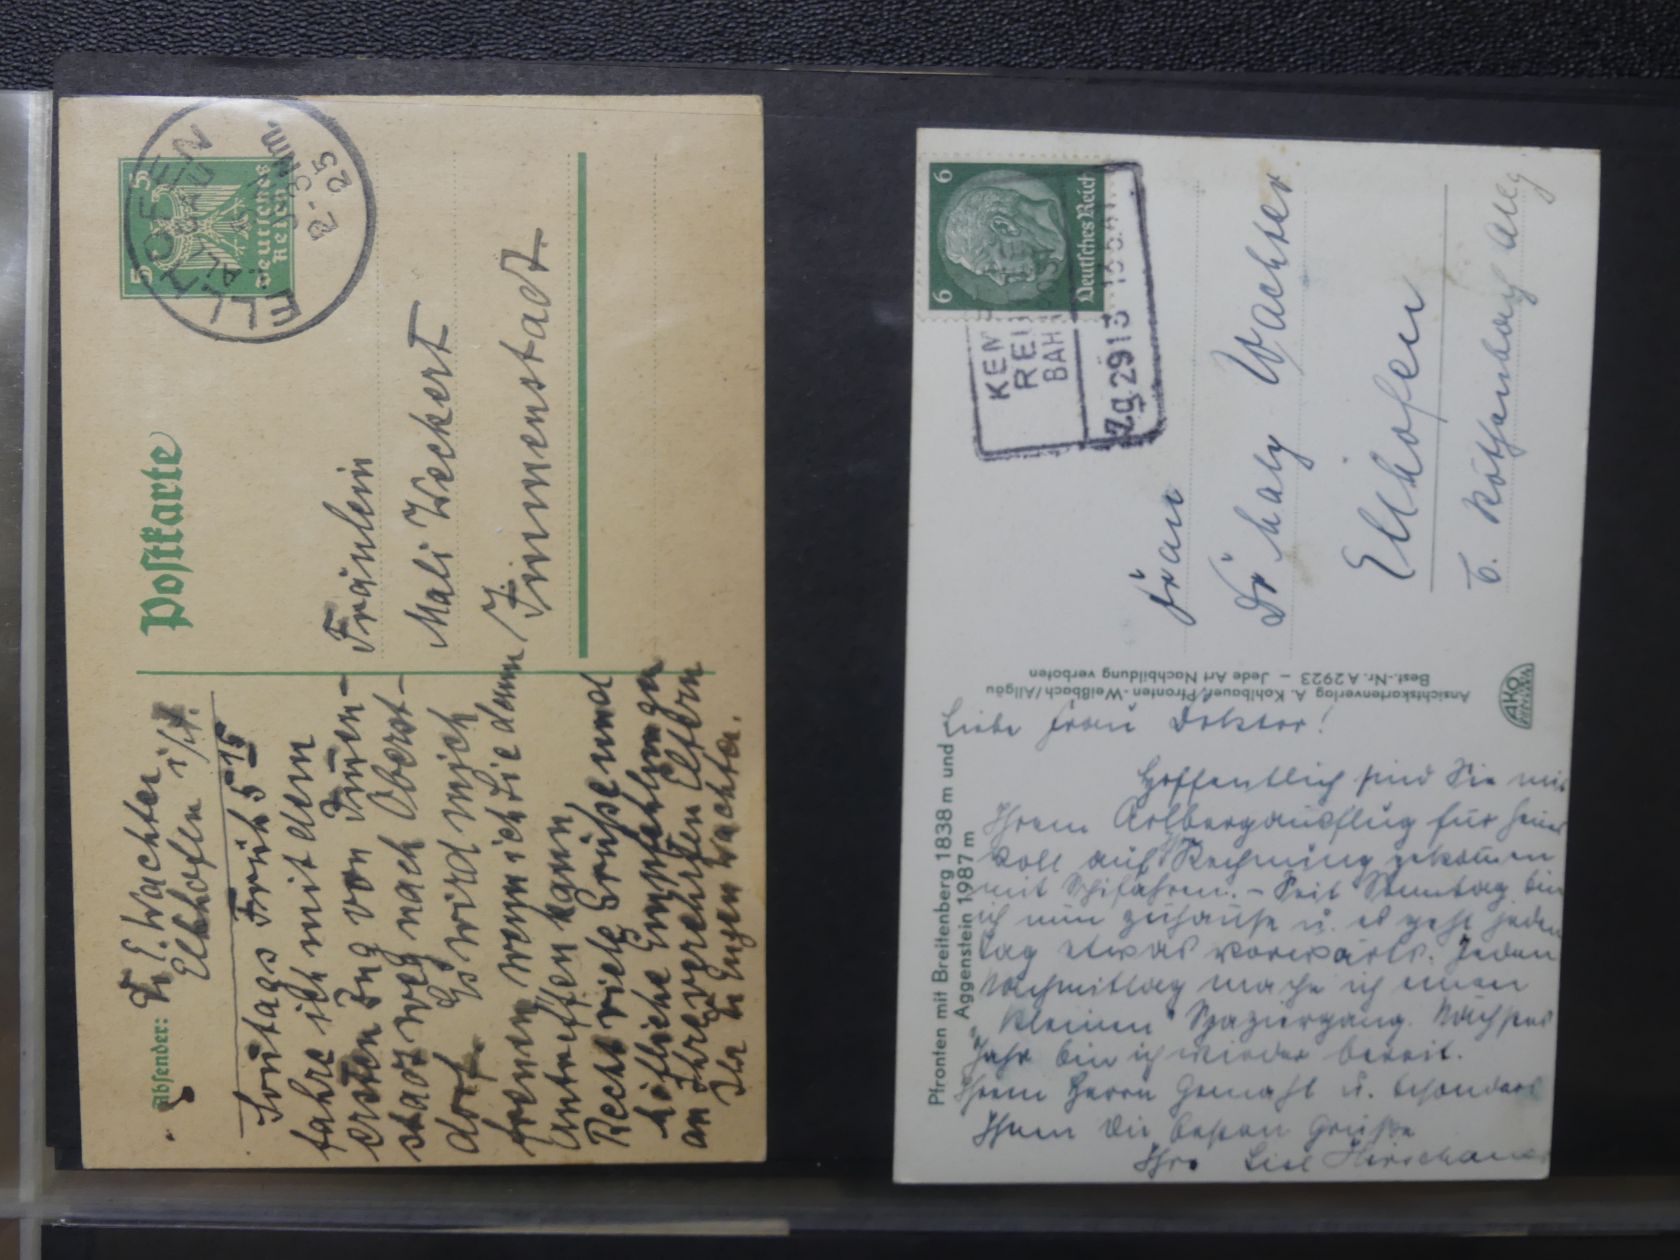 Postkarte
5 5
Deutsches
Reich
ELLHOFEN
ALLGAEU
2-3 Nm.
25
Absender: Dr E. Wachter
Ellhofen i/A.
Sontags Früh 5 15
fahre ich mit dem
ersten Zug von Immen-
stadt weg nach Oberst-
dorf. Es wird mich
freuen wenn ich Sie dann
antreffen kann,
Recht viele Grüße und
höfliche Empfehlungen
an Ihre verehrten Eltern
Ihr Dr Eugen Wachter.
Fräulein
Mali Weckert
Immenstadt
6 6
Deutsches Reich
KEM
REI
BAH
Zg. 2913
Frau
Dr Maly Wachter
Ellhofen
b. Röthenbach Allg
Ansichtskartenverlag A. Kohlbauer, Pfronten-Weißbach/Allgäu
Best.-Nr. A 2923 – Jede Art Nachbildung verboten
AKO
Pfronten mit Breitenberg 1838 m und
Aggenstein 1987 m
Liebe Frau Doktor!
Hoffentlich sind Sie mit
Ihrem Arlbergausflug für heuer
voll auf Rechnung gekommen
mit Schifahren. – Seit Sonntag bin
ich nun zuhause u. es geht jeden
Tag etwas vorwärts. Jeden
Nachmittag mache ich einen
kleinen Spaziergang. Nächstes
Jahr bin ich wieder bereit.
Ihrem Herrn Gemahl u. besonders
Ihnen die besten Grüße
Ihre Lisl